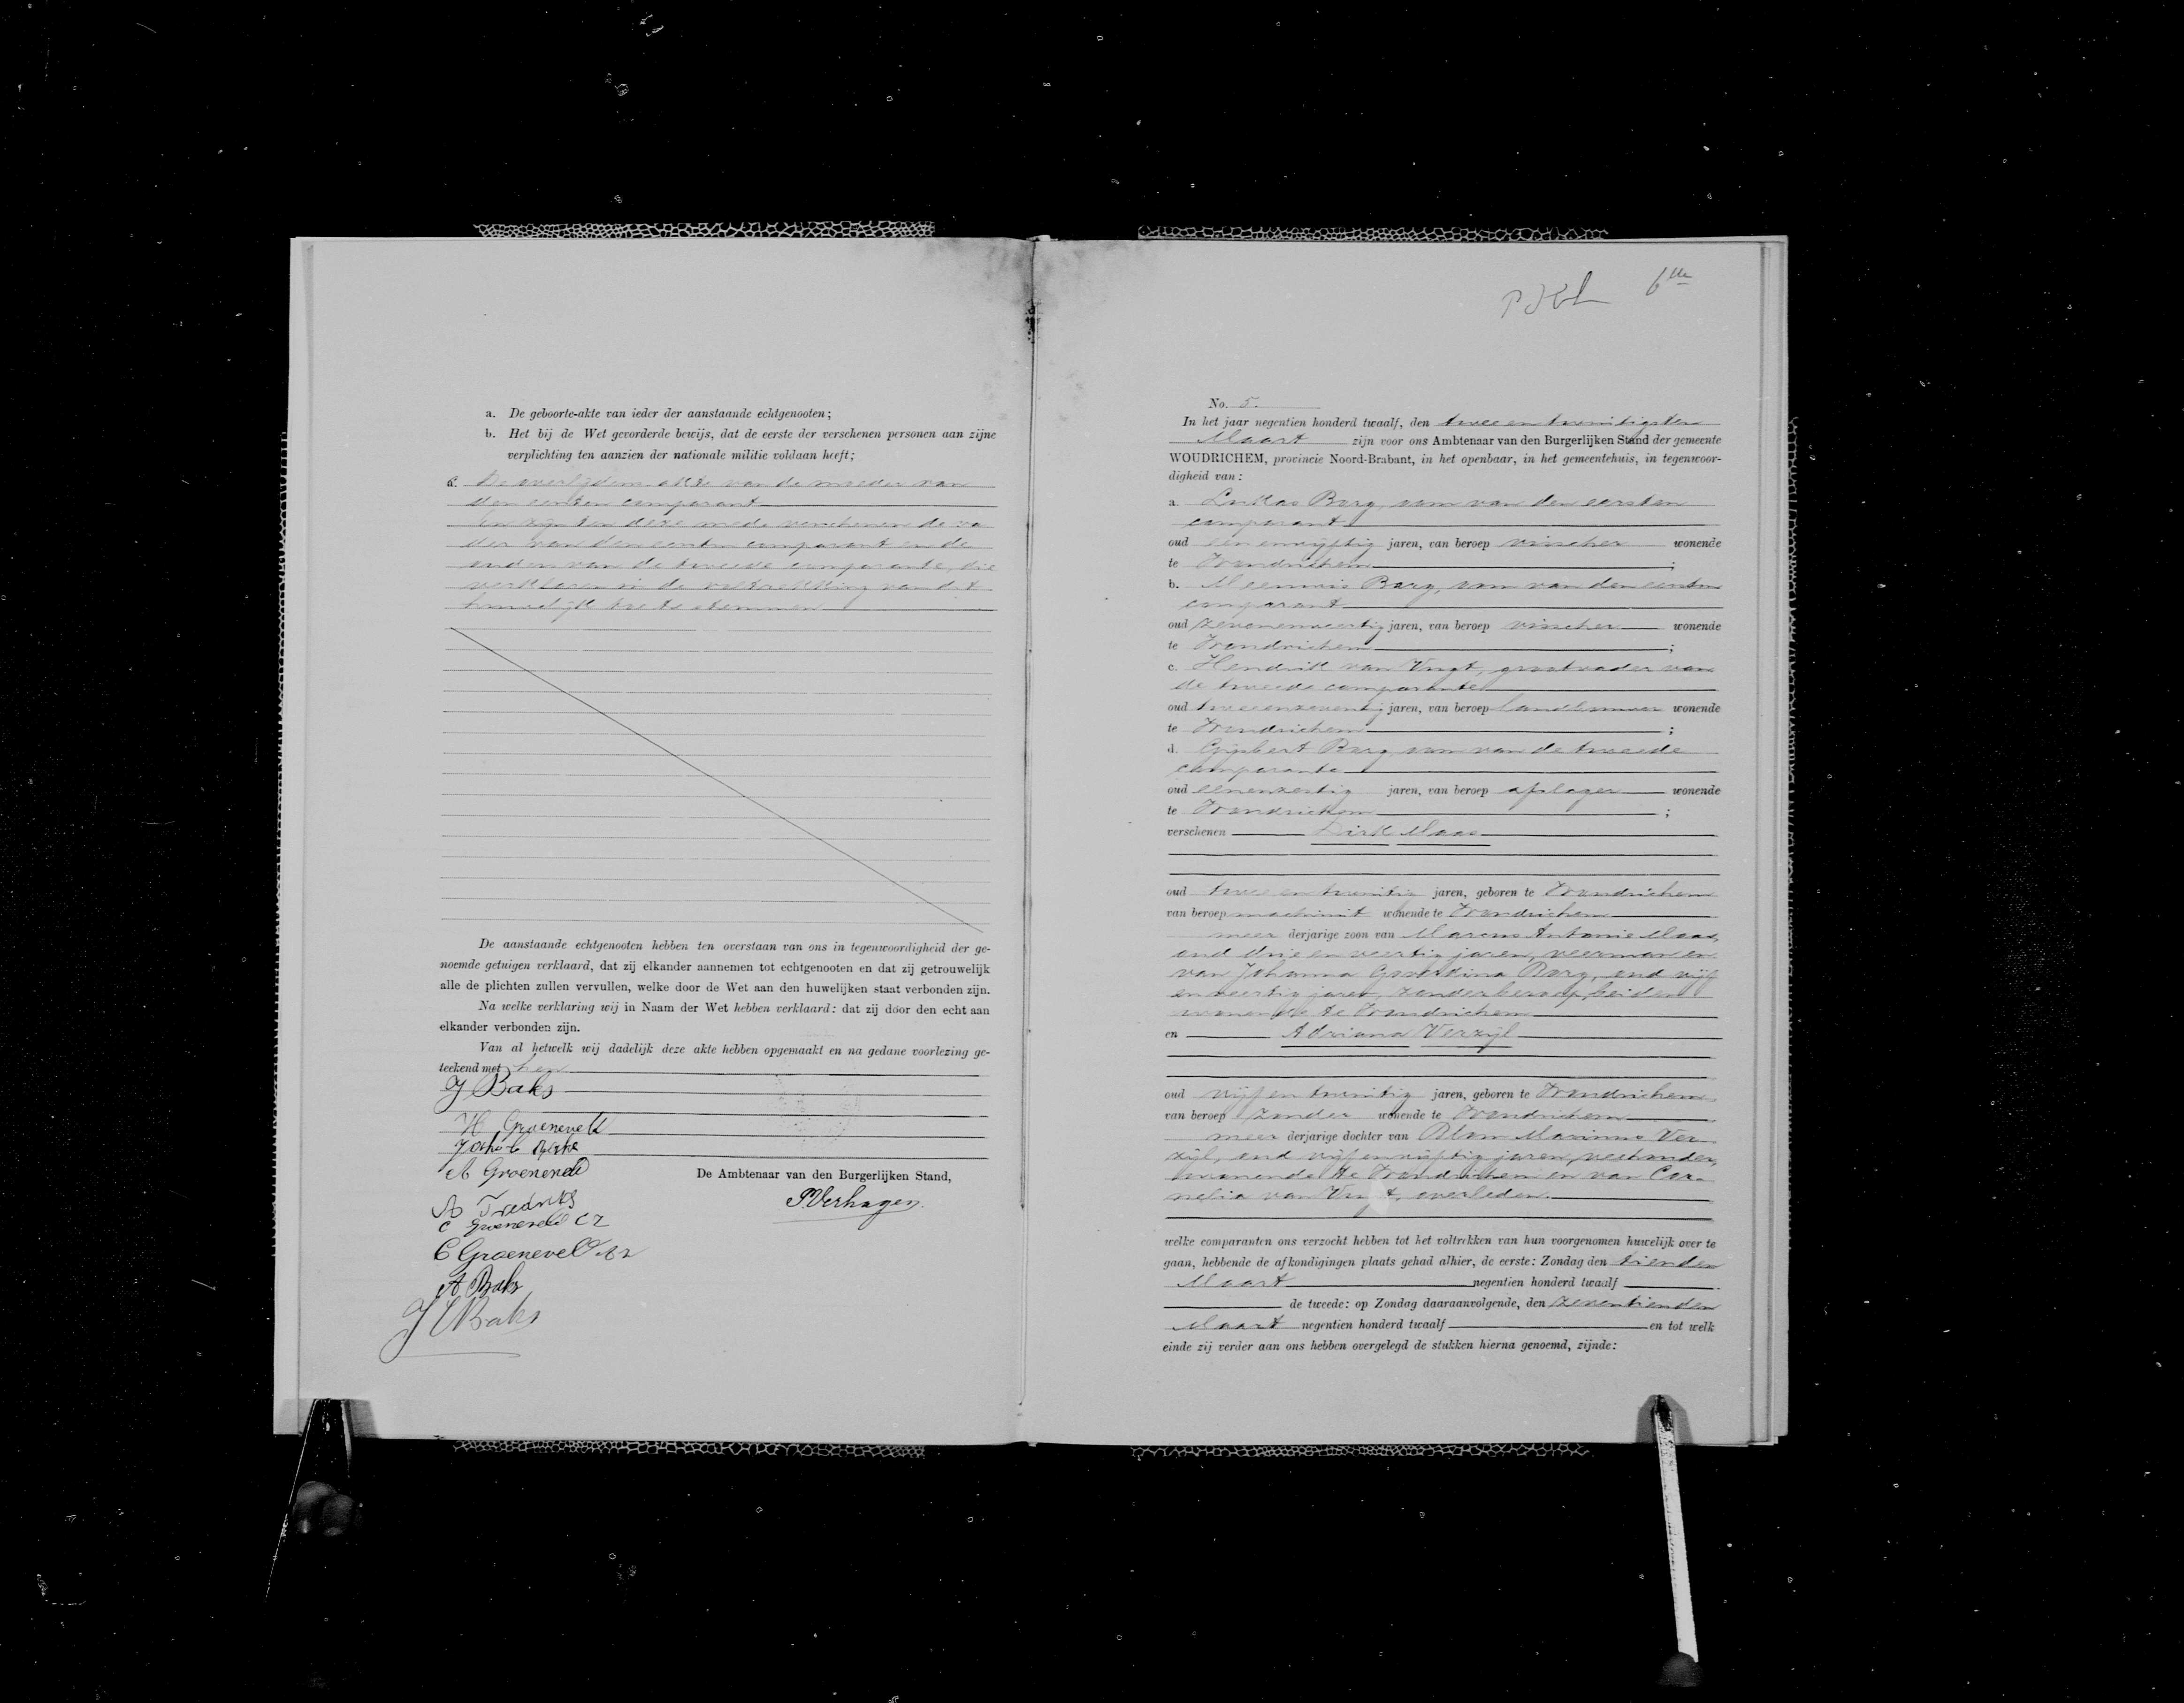 a. De geboorte-akte van ieder der aanstaande echtgenooten;
b. Het bij de Wet gevorderde bewijs, dat de eerste der verschenen personen aan zijne
verplichting ten aanzien der nationale militie voldaan heeft;
De overlijdens akte van de moeder van
den eersten comparant
En zijn ten deze mede verschenen de va
der van den eersten comparant en de
ouders van de tweede comparante, die
verklaren in de voltrekking van dit
huwelijk toe te stemmen
De aanstaande echtgenooten hebben ten overstaan van ons in tegenwoordigheid der ge-
noemde getuigen verklaard, dat zij elkander aannemen tot echtgenooten en dat zij getrouwelijk
alle de plichten zullen vervullen, welke door de Wet aan den huwelijken staat verbonden zijn.
Na welke verklaring wij in Naam der Wet hebben verklaard: dat zij door den echt aan
elkander verbonden zijn.
Van al hetwelk wij dadelijk deze akte hebben opgemaakt en na gedane voorlezing ge-
teekend met hen
J Baks
H Groeneveld
A Groeneveld
De Ambtenaar van den Burgerlijken Stand,
P. Verhagen.
C Groeneveld CZ
C Groeneveld Az
A Baks
J Baks
6de
No. 5.
In het jaar negentien honderd twaalf, den twee en twintigsten
Maart zijn voor ons Ambtenaar van den Burgerlijken Stand der gemeente
WOUDRICHEM, provincie Noord-Brabant, in het openbaar, in het gemeentehuis, in tegenwoor-
digheid van:
a. Lukas Borg, oom van den eersten
comparant
oud een envijftig jaren, van beroep visscher wonende
te Woudrichem ;
b. Borg, oom van den eersten
comparant
oud zevenenveertig jaren, van beroep visscher wonende
te Woudrichem ;
c. Hendrik van Vugt, grootvader van
de tweede comparante
oud tweeenzeventig jaren, van beroep landbouwer wonende
te Woudrichem ;
d. Gijsbert Borg oom van de tweede
comparante
oud eenenzestig jaren, van beroep afslager wonende
te Woudrichem ;
verschenen Dirk Maas
oud twee en twintig jaren, geboren te Woudrichem
van beroep machinist wonende te Woudrichem
meer derjarige zoon van Marcus Antonie Maas,
oud drie en veertig jaren, veerman en
van Johanna Gerardina Borg, oud vijf
en veertig jaren, zonder beroep, beiden
wonende te Woudrichem
en Adriana Verzijl
oud vijf en twintig jaren, geboren te Woudrichem
van beroep zonder wonende te Woudrichem
meer derjarige dochter van Marinus Ver
zijl, oud vijf envijftig jaren, veehouder,
wonende te Woudrichem en van Cor-
nelia van Vugt, overleden.
welke comparanten ons verzocht hebben tot het voltrekken van hun voorgenomen huwelijk over te
gaan, hebbende de afkondigingen plaats gehad alhier, de eerste: Zondag den tienden
Maart negentien honderd twaalf
de tweede: op Zondag daaraanvolgende, den zeventienden
Maart negentien honderd twaalf en tot welk
einde zij verder aan ons hebben overgelegd de stukken hierna genoemd, zijnde: